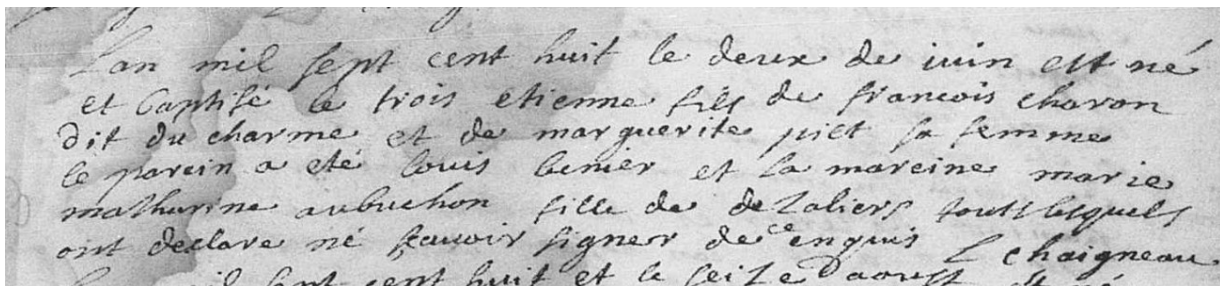 Lan mil sept cent huit le deux de iuin est né
et baptisé le trois etienne fils de francois charon
dit du charme et de marguerite piet sa femme
le parein a eté louis benier et la mareine marie
mathurine aubuchon fille de dezaliers touts lesquels
ont declare né scauoir signer de ce enquis L chaigneau
mil sept cent huit et le seize daoust est né